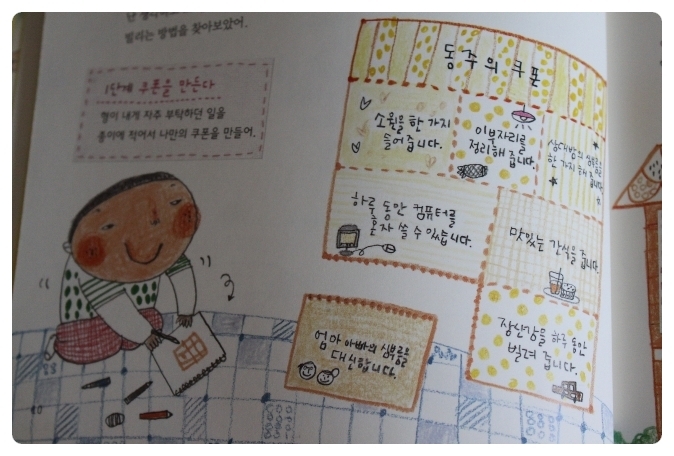 빌리는 방법을 찾아보았어.
1단계 쿠폰을 만든다
형이 내게 자주 부탁하던 일을
종이에 적어서 나만의 쿠폰을 만들어.
동주의 쿠폰
소원을 한 가지
들어 줍니다.
이부자리를
정리해 줍니다.
상대방의 심부름을
한 가지 해 줍니다.
하루 동안 컴퓨터를
혼자 쓸 수 있습니다.
맛있는 간식을 줍니다.
장난감을 하루 동안
빌려 줍니다.
엄마 아빠의 심부름을
대신합니다.